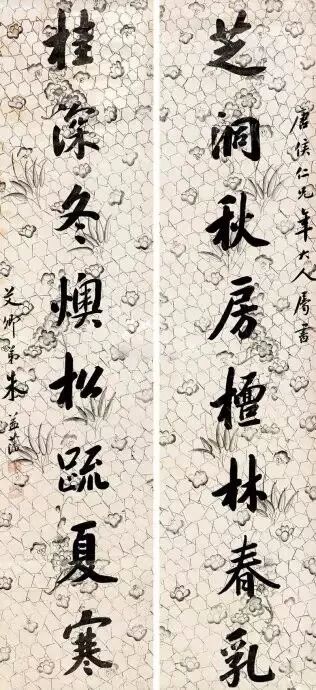 唐侯仁兄年大人属書
芝洞秋房檀林春乳
桂深冬燠松疏夏寒
艾卿弟朱益藩